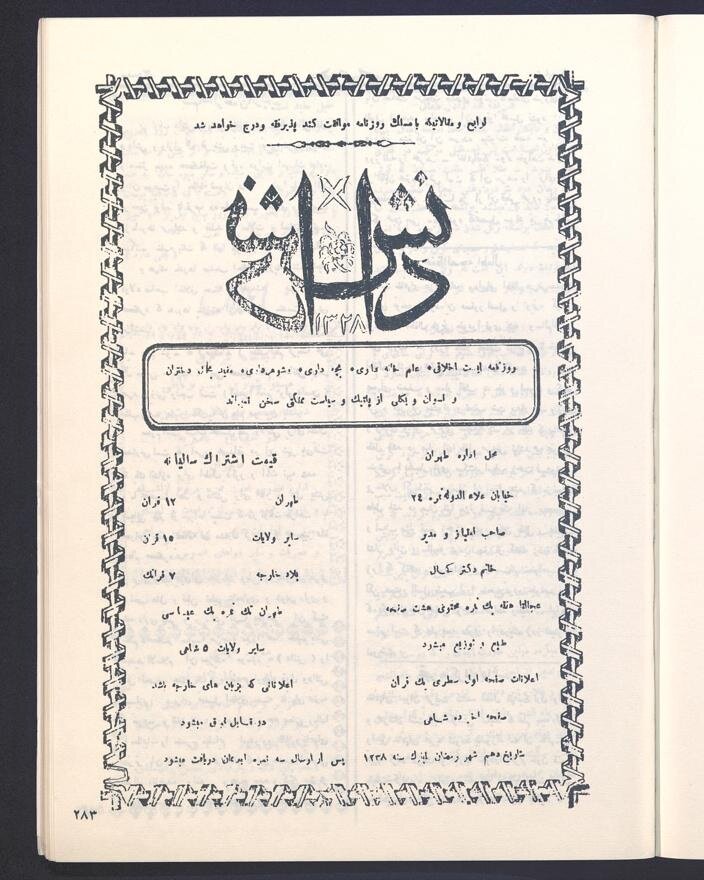 لوایح و مقالاتیکه با مسلك روزنامه موافقت کند پذیرفته و درج خواهد شد
دانش
۱۳۲۸
روزنامه ایست اخلاقی علم خانه داری بچه داری شوهر داری مفید بحال دختران
و نسوان و بکلی از پلتیك و سیاست مملکتی سخن نمیراند
محل اداره طهران
خیابان علاء الدوله نمره ۲٤
صاحب امتیاز و مدیر
خانم دکتر کحال
عجالتا هفته یك نمره محتوی هشت صفحه
طبع و توزیع میشود
اعلانات صفحه اول سطری یك قران
صفحه آخر ده شاهی
بتاریخ دهم شهر رمضان المبارك سنه ۱۳۲۸
قیمت اشتراك سالیانه
طهران ۱۲ قران
سایر ولایات ۱۵ قران
بلاد خارجه ۷ فرانك
طهران تك نمره یك عباسی
سایر ولایات ۵ شاهی
اعلاناتی که بزبان های خارجه باشد
دو مقابل فوق میشود
پس از ارسال سه نمره آبونمان دریافت میشود
۲۸۳